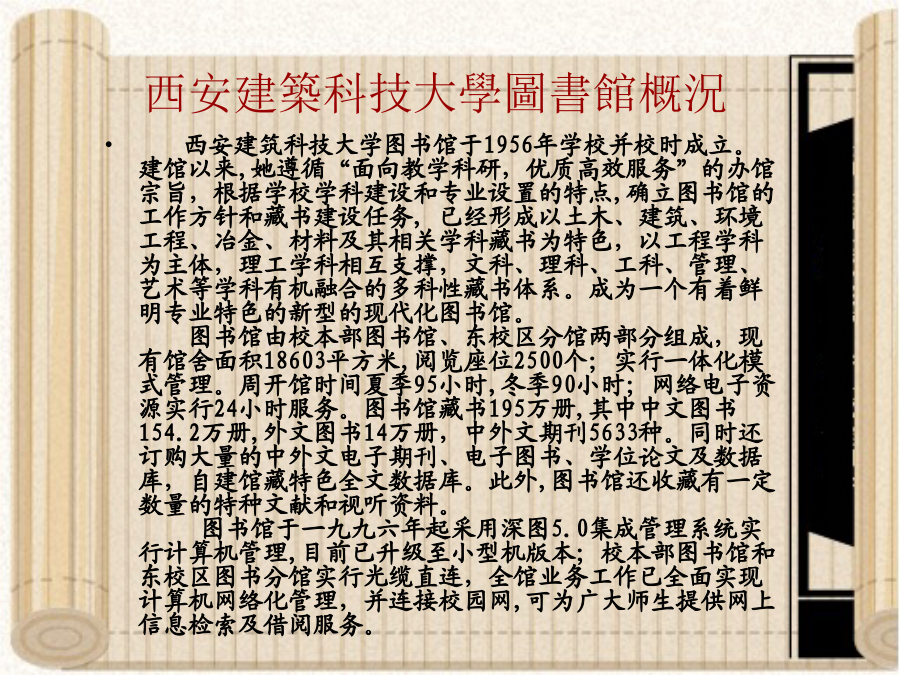 西安建築科技大學圖書館概況
• 西安建筑科技大学图书馆于1956年学校并校时成立。
建馆以来,她遵循“面向教学科研，优质高效服务”的办馆
宗旨，根据学校学科建设和专业设置的特点,确立图书馆的
工作方针和藏书建设任务，已经形成以土木、建筑、环境
工程、冶金、材料及其相关学科藏书为特色，以工程学科
为主体，理工学科相互支撑，文科、理科、工科、管理、
艺术等学科有机融合的多科性藏书体系。成为一个有着鲜
明专业特色的新型的现代化图书馆。
图书馆由校本部图书馆、东校区分馆两部分组成，现
有馆舍面积18603平方米,阅览座位2500个；实行一体化模
式管理。周开馆时间夏季95小时,冬季90小时；网络电子资
源实行24小时服务。图书馆藏书195万册,其中中文图书
154.2万册,外文图书14万册，中外文期刊5633种。同时还
订购大量的中外文电子期刊、电子图书、学位论文及数据
库，自建馆藏特色全文数据库。此外,图书馆还收藏有一定
数量的特种文献和视听资料。
图书馆于一九九六年起采用深图5.0集成管理系统实
行计算机管理,目前已升级至小型机版本；校本部图书馆和
东校区图书分馆实行光缆直连，全馆业务工作已全面实现
计算机网络化管理，并连接校园网,可为广大师生提供网上
信息检索及借阅服务。